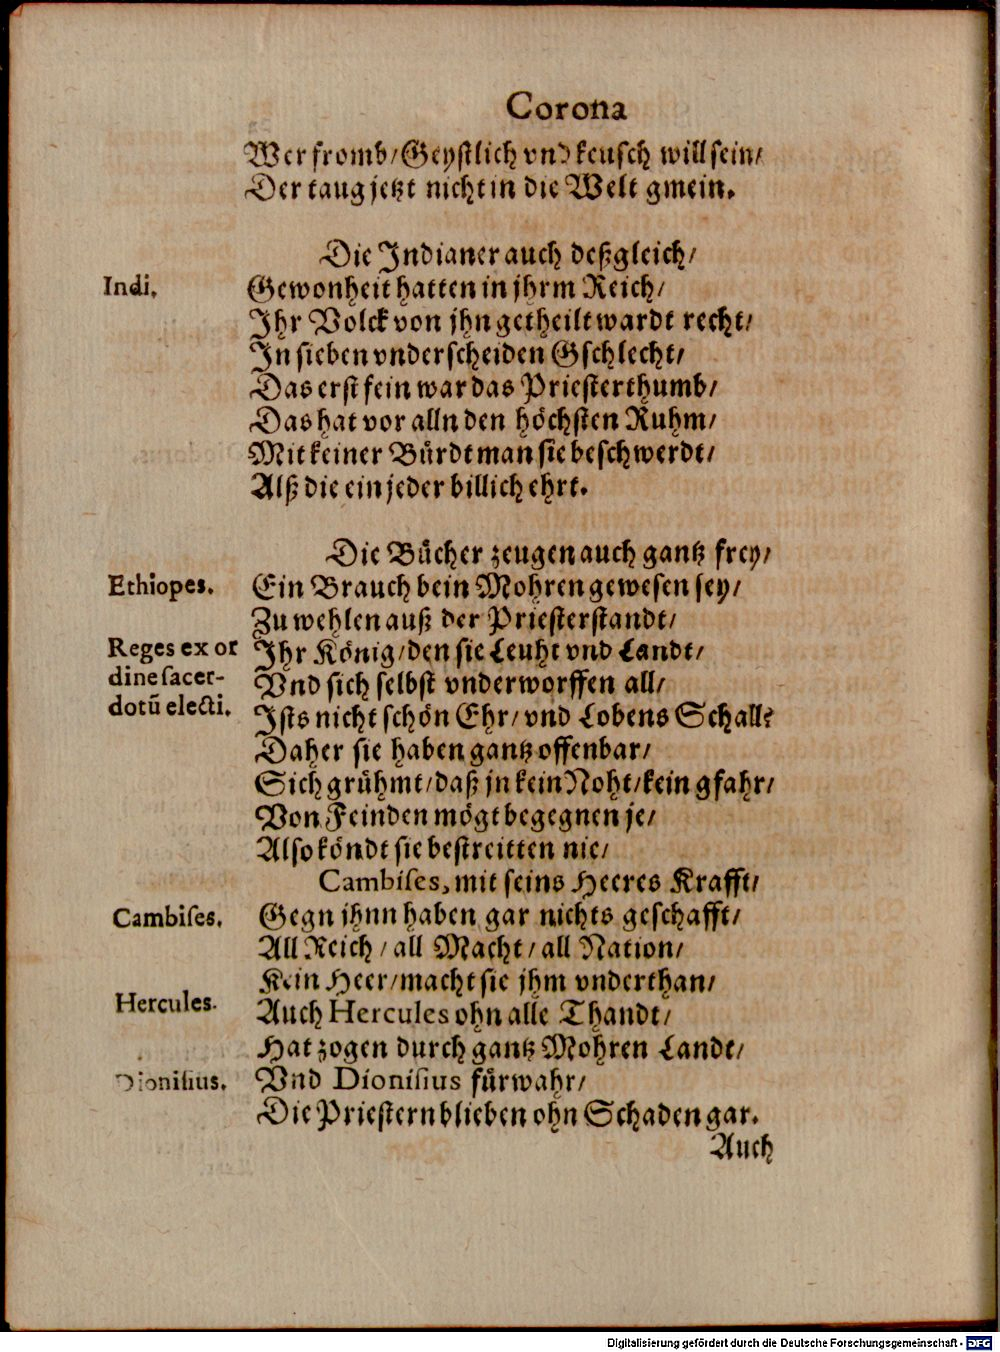 Corona
Wer fromb/Geystlich vnd keusch will sein/
Der taug jetzt nicht in die Welt gmein.
Die Indianer auch deßgleich/
Indi.
Gewonheit hatten in jhrm Reich/
Ihr Volck von jhn getheilt wardt recht/
In sieben vnderscheiden Gschlecht/
Das erst sein war das Priesterthumb/
Das hat vor alln den höchsten Ruhm/
Mit keiner Bürdt man sie beschwerdt/
Alß die ein jeder billich ehrt.
Die Bücher zeugen auch gantz frey/
Ethiopes.
Ein Brauch bein Mohren gewesen sey/
Zu wehlen auß der Priesterstandt/
Reges ex or
dine sacer-
dotū electi.
Ihr König/den sie Leuht vnd Landt/
Vnd sich selbst vnderworffen all/
Ists nicht schön Ehr/vnd Lobens Schall?
Daher sie haben gantz offenbar/
Sich grühmt/daß jn kein Noht/kein gfahr/
Von Feinden mögt begegnen je/
Also köndt sie bestreitten nie/
Cambises, mit seins Heeres Krafft/
Cambises.
Gegn jhnn haben gar nichts geschafft/
All Reich/all Macht/all Nation/
Kein Heer/macht sie jhm vnderthan/
Hercules.
Auch Hercules ohn alle Thandt/
Hat zogen durch gantz Mohren Landt/
Dionisius.
Vnd Dionisius fürwahr/
Die Priestern blieben ohn Schaden gar.
Auch
Digitalisierung gefördert durch die Deutsche Forschungsgemeinschaft - DFG